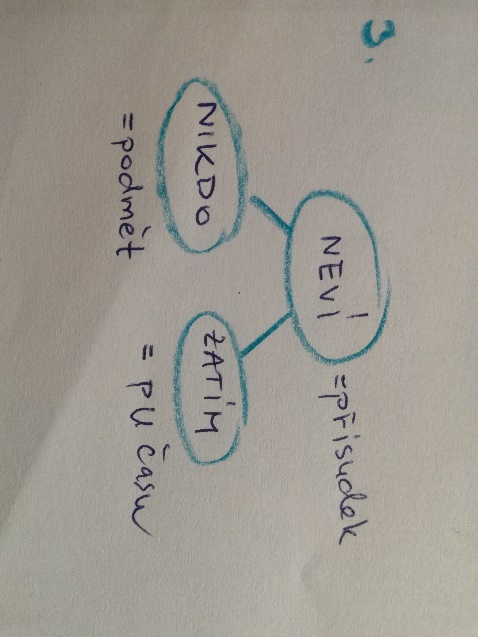 3.
NEVÍ
=přísudek
NIKDO
=podmět
ZATÍM
= PU času